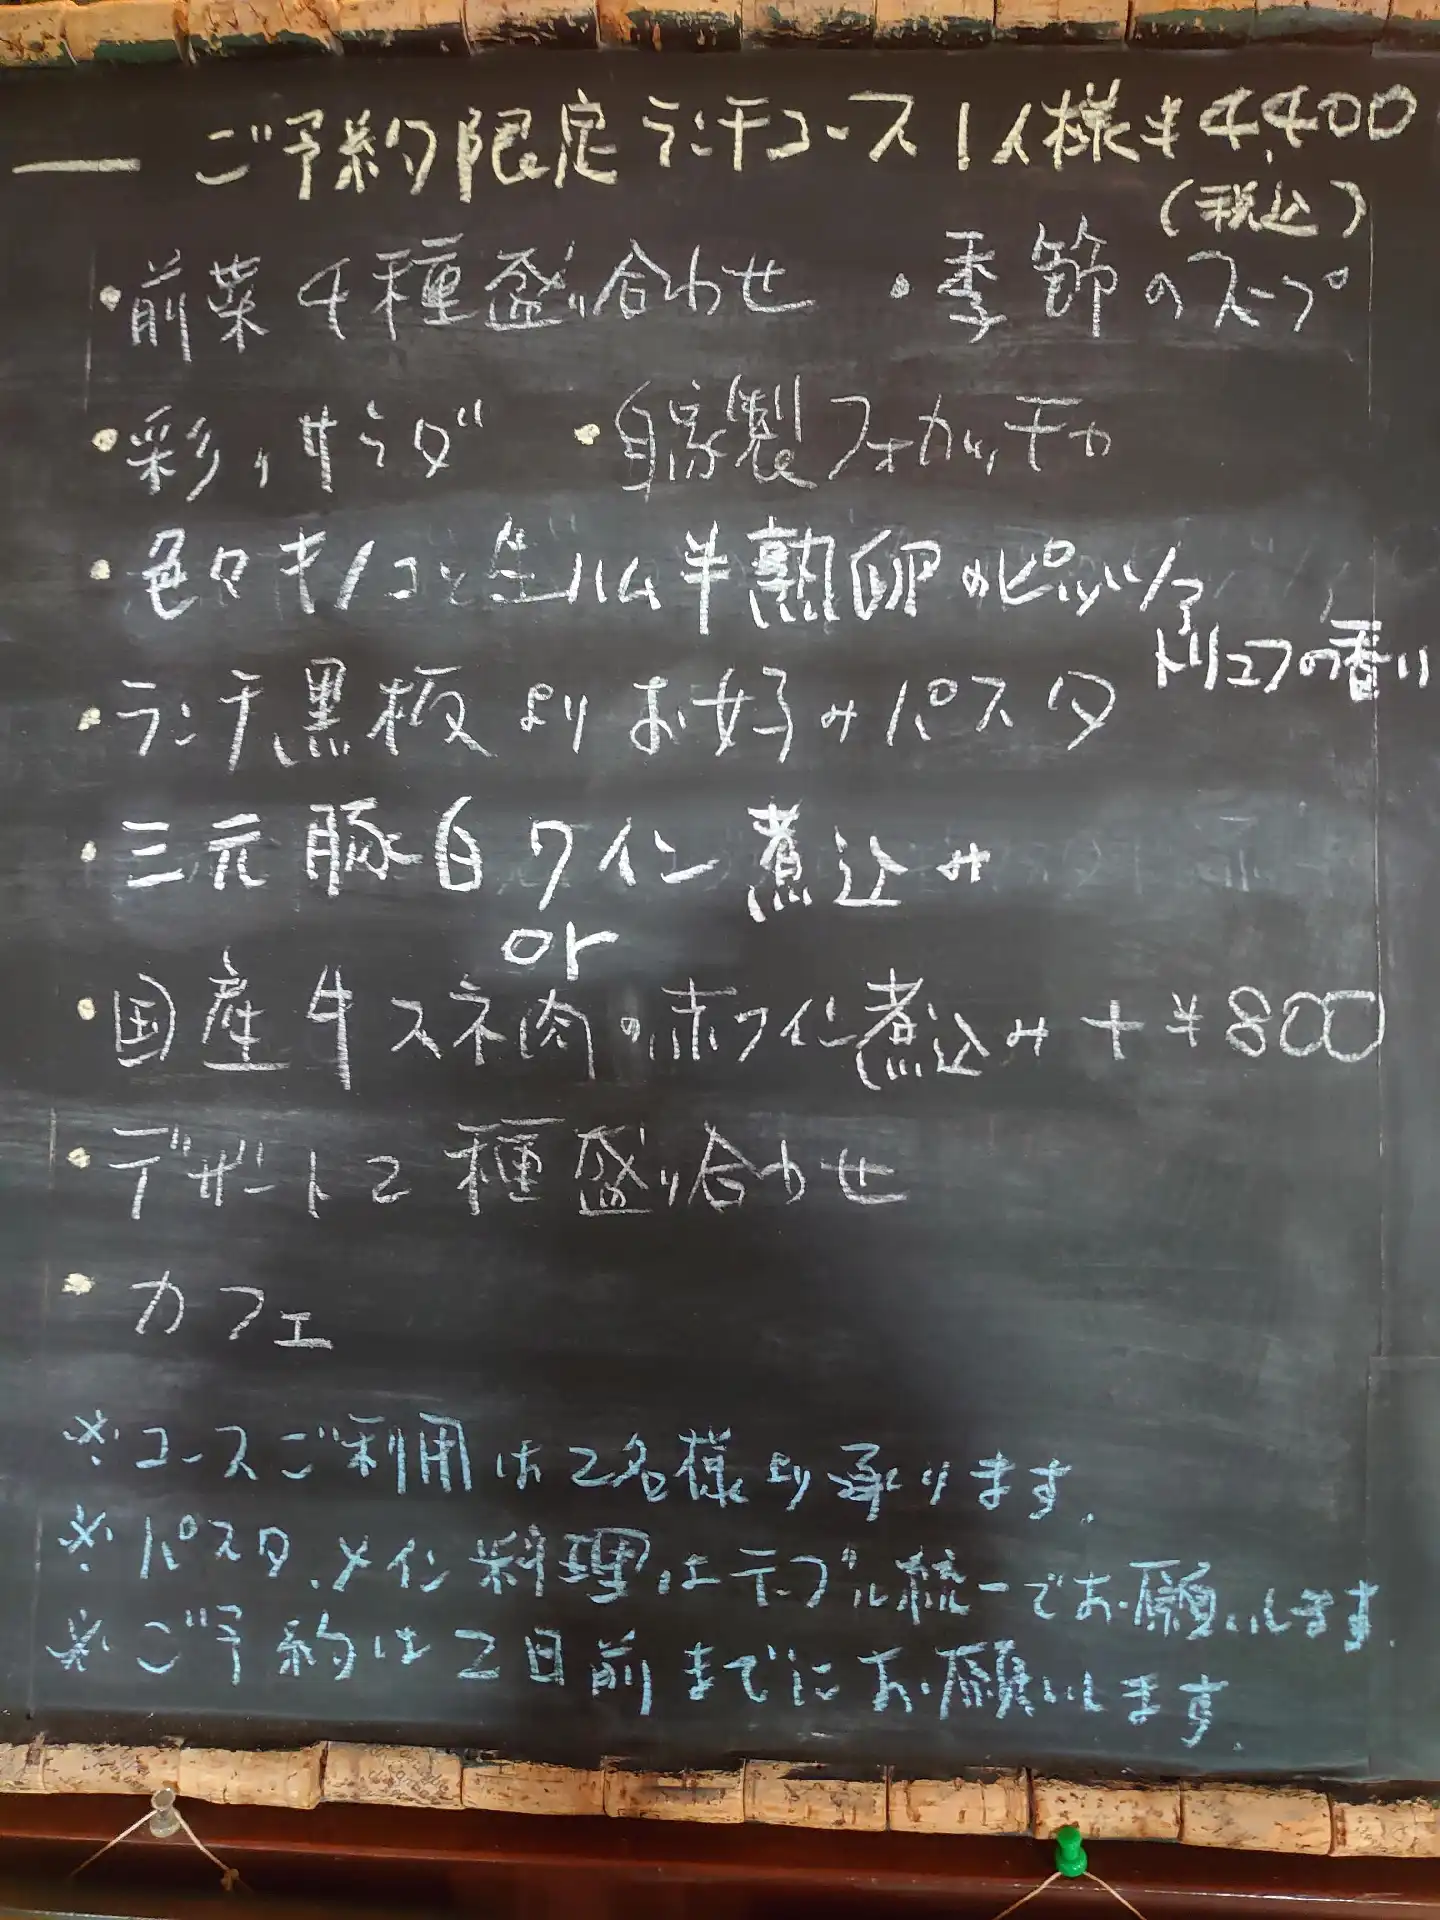 ご予約限定ランチコース1人様¥4,400
(税込)
・前菜4種盛り合わせ ・季節のスープ
・彩りサラダ ・自家製フォカッチャ
・色々キノコと生ハム半熟卵のピッツァ
トリュフの香り
・ランチ黒板よりお好みパスタ
・三元豚白ワイン煮込み
or
・国産牛スネ肉の赤ワイン煮込み+¥800
・デザート2種盛り合わせ
・カフェ
※コースご利用は2名様より承ります.
※パスタ、メイン料理はテーブル統一でお願いします.
※ご予約は2日前までにお願いします.